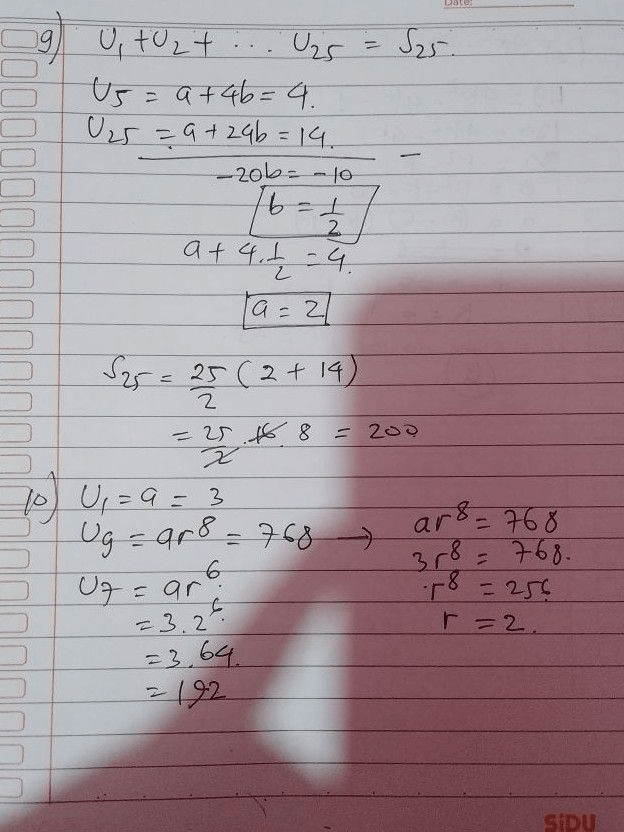 Date:
9) U₁ + U₂ + ... U₂₅ = S₂₅.
U₅ = a + 4b = 4.
U₂₅ = a + 24b = 14. −
-20b = -10
b = 1/2
a + 4 . 1/2 = 4.
a = 2
S₂₅ = 25/2 (2 + 14)
= 25/2 . 16 8 = 200
10) U₁ = a = 3
U₉ = ar⁸ = 768 → ar⁸ = 768
3r⁸ = 768.
U₇ = ar⁶ r⁸ = 256
= 3.2⁶ r = 2.
= 3.64.
= 192
SiDU